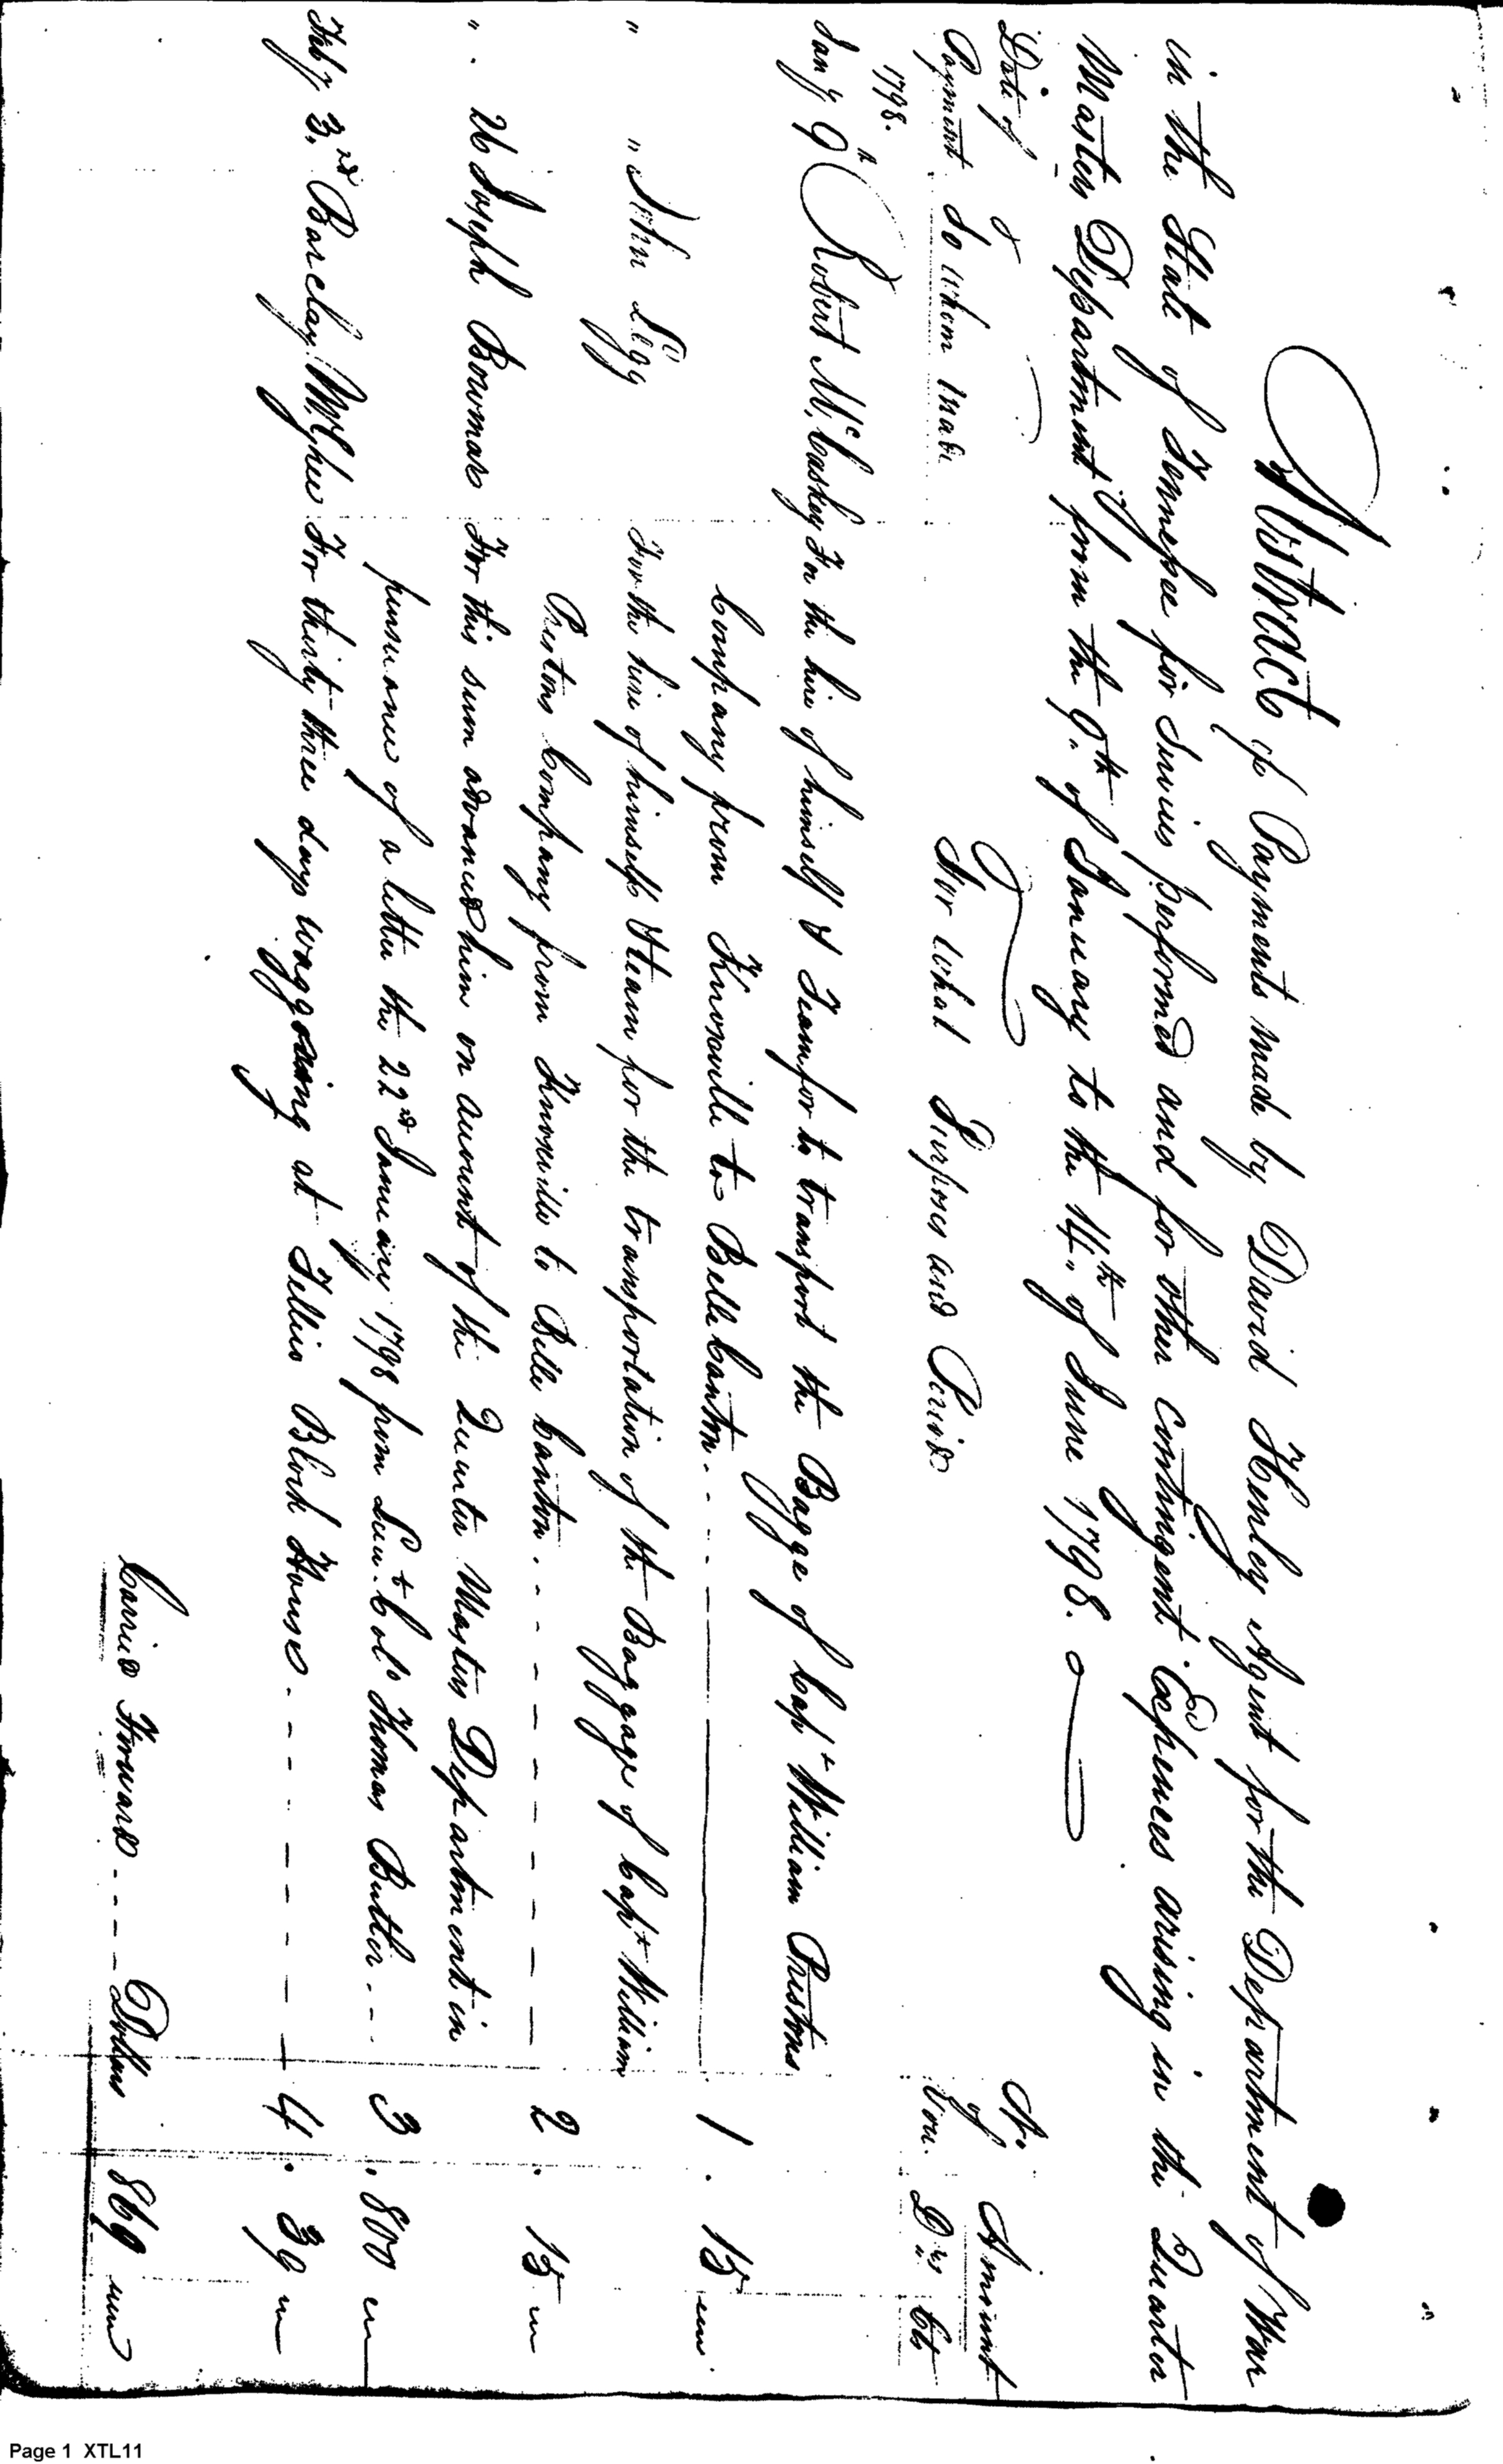 Abstract of Payments made by David Henley Agent for the Department of War
in the State of Tennessee for Services performed and for other contingent Expences arising in the Quarter
Masters Department from the 9th of January to the 14th of June 1798.
Date of
Payment & To whom made For what Purposes and Period No. of Vou. Amount Drs Cts
1798.
Jany 9th Robert McCaskey For the hire of himself & Team for to transport the Bagge of Capt William Prestons
Company from Knoxville to Belle Canton 1 15
" " John Legg For the hire of himself & team for the transportation of the Baggage of Capt William
Prestons Company from Knoxville to Belle Canton 2 15
" 26 Joseph Bowman For this sum advanced him on account of the Quarter Masters Department in
pursuance of a letter the 22d January 1798 from Lieut Colo Thomas Butler 3 800
Feby 3rd Barclay McGhee For thirty three days waggoning at Tellico Block House 4 39
Carried Forward Dollars 869
Page 1 XTL11